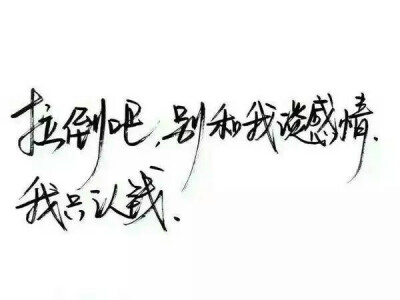 拉倒吧,别和我谈感情.
我只认钱.